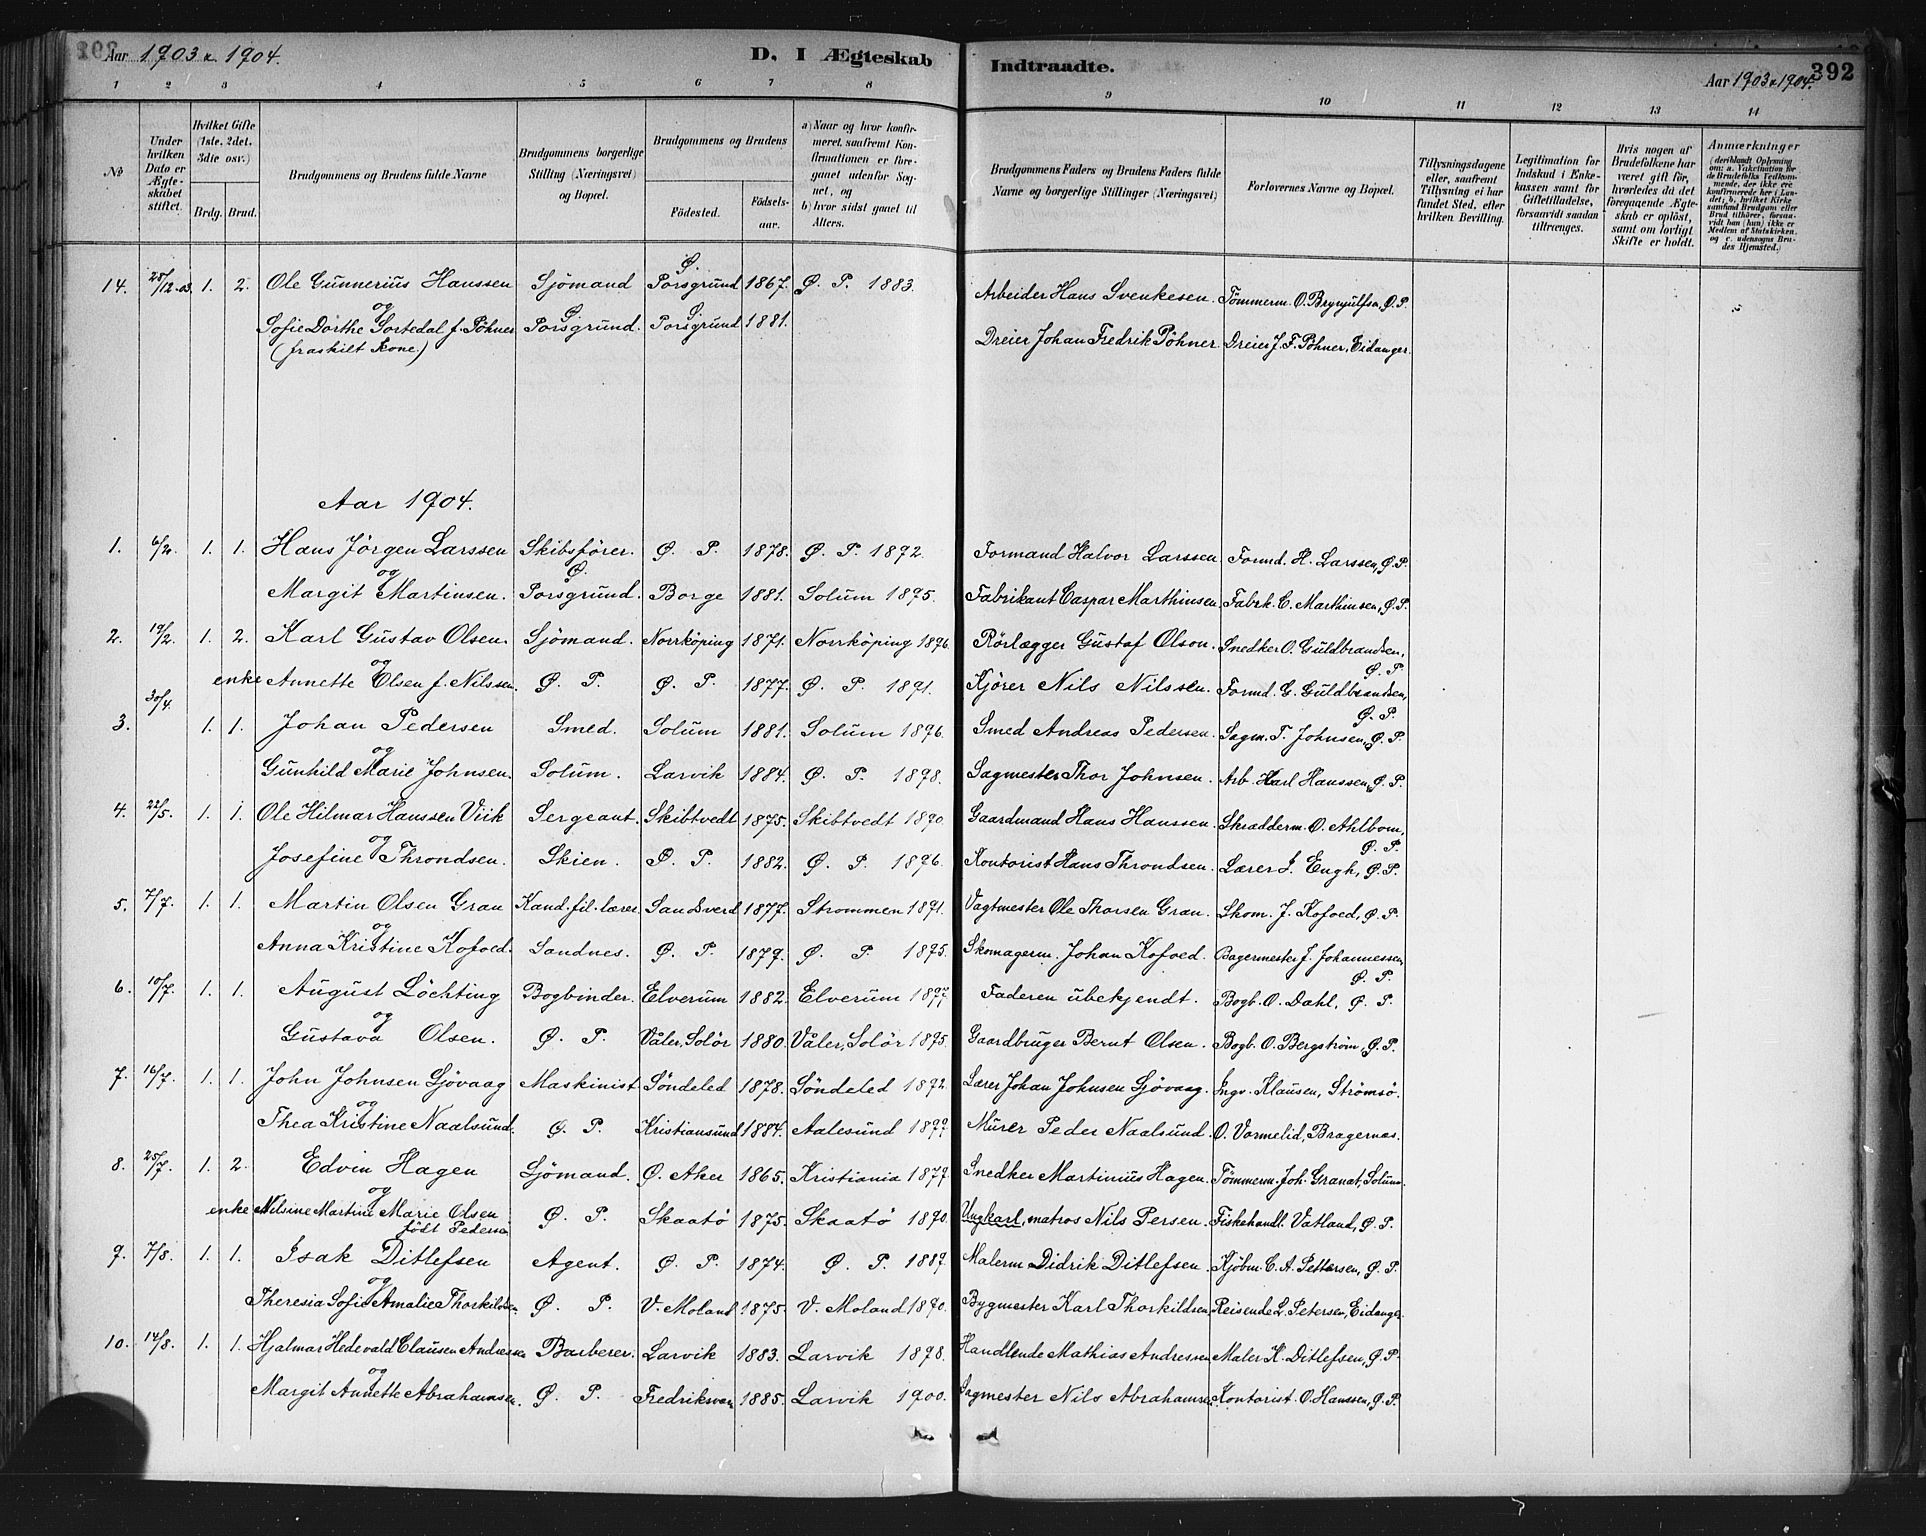 Aar 1903 & 1904.
D. I Ægteskab
Indtraadte.
Aar 1903 & 1904.
392
1 2 3 4 5 6 7 8 9 10 11 12 13 14
No
Under hvilken Dato er Ægteskabet stiftet.
Hvilket Gifte (1ste, 2det, 3die osv.)
Brdg. Brud.
Brudgommens og Brudens fulde Navne
Brudgommens borgerlige Stilling (Næringsvei) og Bopæl.
Brudgommens og Brudens
Födested.
Födselsaar.
a) Naar og hvor konfirmeret, saafremt Konfirmationen er foregaaet udenfor Sognet, og
b) hvor sidst gaaet til Alters.
Brudgommens Faders og Brudens Faders fulde Navne og borgerlige Stillinger (Næringsvei)
Forlovernes Navne og Bopæl.
Tillysningsdagene eller, saafremt Tillysning ei har fundet Sted, efter hvilken Bevilling.
Legitimation for Indskud i Enkekassen samt for Giftetilladelse, forsaavidt saadan tiltrænges.
Hvis nogen af Brudefolkene har været gift för, hvorledes da det foregaaende Ægteskab er oplöst, samt om lovligt Skifte er holdt.
Anmærkninger
(deriblandt Oplysning om: a. Vakcination for de Brudefolks Vedkommende, der ikke ere konfirmerede her i Landet; b. hvilket Kirkesamfund Brudgom eller Brud tilhörer, forsaavidt han (hun) ikke er Medlem af Statskirken, og c. udensogns Brudes Hjemsted.)
14. 28/12-03. 1. 2. Ole Gunnerius Hanssen Sjömand Ø. Porsgrund 1867. Ø. P. 1883. Arbeider Hans Svenkesen. Tömmerm. O. Brynjulfsen, Ø. P.
og
Sofie Dorthe Sortedal f. Pöhner Ø. Porsgrund. Ø. Porsgrund 1881. Dreier Johan Fredrik Pöhner. Dreier J. F. Pöhner, Eidanger.
(fraskilt Kone.)
Aar 1904.
1. 6/2. 1. 1. Hans Jörgen Larssen Skibsförer. Ø. P. 1878. Ø. P. 1892. Formand Halvor Larssen. Formd. H. Larssen, Ø. P.
og
Margit Martinsen. Ø. Porsgrund. Borge 1881. Solum 1895. Fabrikant Caspar Marthinsen. Fabrk. C. Marthinsen, Ø. P.
2. 19/2. 1. 2. Karl Gustav Olsen. Sjömand. Norrköping 1871. Norrköping 1896. Rörlægger Gustaf Olson. Snedker O. Guldbrandsen, Ø. P.
og
enke Annette Olsen f. Nilssen. Ø. P. Ø. P. 1877. Ø. P. 1891. Kjörer Nils Nilssen. Formd. G. Guldbrandsen, Ø. P.
3. 30/4. 1. 1. Johan Pedersen Smed. Solum 1881. Solum 1896. Smed Andreas Pedersen. Sagm. T. Johnsen, Ø. P.
og
Gunhild Marie Johnsen. Solum. Larvik 1884. Ø. P. 1898. Sagmester Thor Johnsen. Arb. Karl Hanssen, Ø. P.
4. 22/5. 1. 1. Ole Hilmar Hanssen Viik Sergeant. Skibtvedt 1875. Skibtvedt 1890. Gaardmand Hans Hanssen. Skradderm. O. Ahlbom, Ø. P.
og
Josefine Throndsen. Skien. Ø. P. 1882. Ø. P. 1896. Kontorist Hans Throndsen. Lærer J. Engh, Ø. P.
5. 7/7. 1. 1. Martin Olsen Gran Kand. fil. lærer Sandsverd 1877. Strommen 1891. Vagtmester Ole Thorsen Gran. Skom. J. Kofoed, Ø. P.
og
Anna Kristine Kofoed. Sandnes. Ø. P. 1879. Ø. P. 1895. Skomagerm. Johan Kofoed. Bagermester J. Johannessen, Ø. P.
6. 10/7. 1. 1. August Löchting Bogbinder. Elverum 1882. Elverum 1897. Faderen ubekjendt. Bogb. O. Dahl, Ø. P.
og
Gustava Olsen. Ø. P. Våler, Solör 1880. Våler, Solör 1895. Gaardbruger Bernt Olsen. Bogb. O. Bergström, Ø. P.
7. 16/7. 1. 1. John Johnsen Sjövaag Maskinist Söndeled 1878. Söndeled 1892. Lærer Johan Johnsen Sjövaag. Ingv. Klausen, Strömsö.
og
Thea Kristine Naalsund. Ø. P. Kristiansund 1884. Aalesund 1899. Murer Peder Naalsund. O. Vormelid, Bragernas.
8. 25/7. 1. 2. Edvin Hagen Sjömand. Ø. Aker 1865. Kristiania 1879. Snedker Martinius Hagen. Tömmerm. Joh. Granat, Solum.
og
enke Nilsine Martine Marie Olsen Ø. P. Skaatö 1875. Skaatö 1890. Ungkarl, matros Nils Persen. Fiskehandl. Vatland, Ø. P.
födt Pedersen
9. 7/8. 1. 1. Isak Ditlefsen Agent. Ø. P. 1874. Ø. P. 1889. Malerm Didrik Ditlefsen. Kjöbm. C. A. Pettersen, Ø. P.
og
Theresia Sofie Amalie Thorkildsen. Ø. P. V. Moland 1875. V. Moland 1890. Bygmester Karl Thorkildsen. Reisende L. Petersen, Eidanger.
10. 14/8. 1. 1. Hjalmar Hedevald Clausen Andressen Barberer. Larvik 1883. Larvik 1898. Handlende Mathias Andressen. Maler K. Ditlefsen, Ø. P.
og
Margit Annette Abrahamsen. Ø. P. Fredriksværn 1885. Larvik 1900. Sagmester Nils Abrahamsen. Kontorist O. Hanssen, Ø. P.